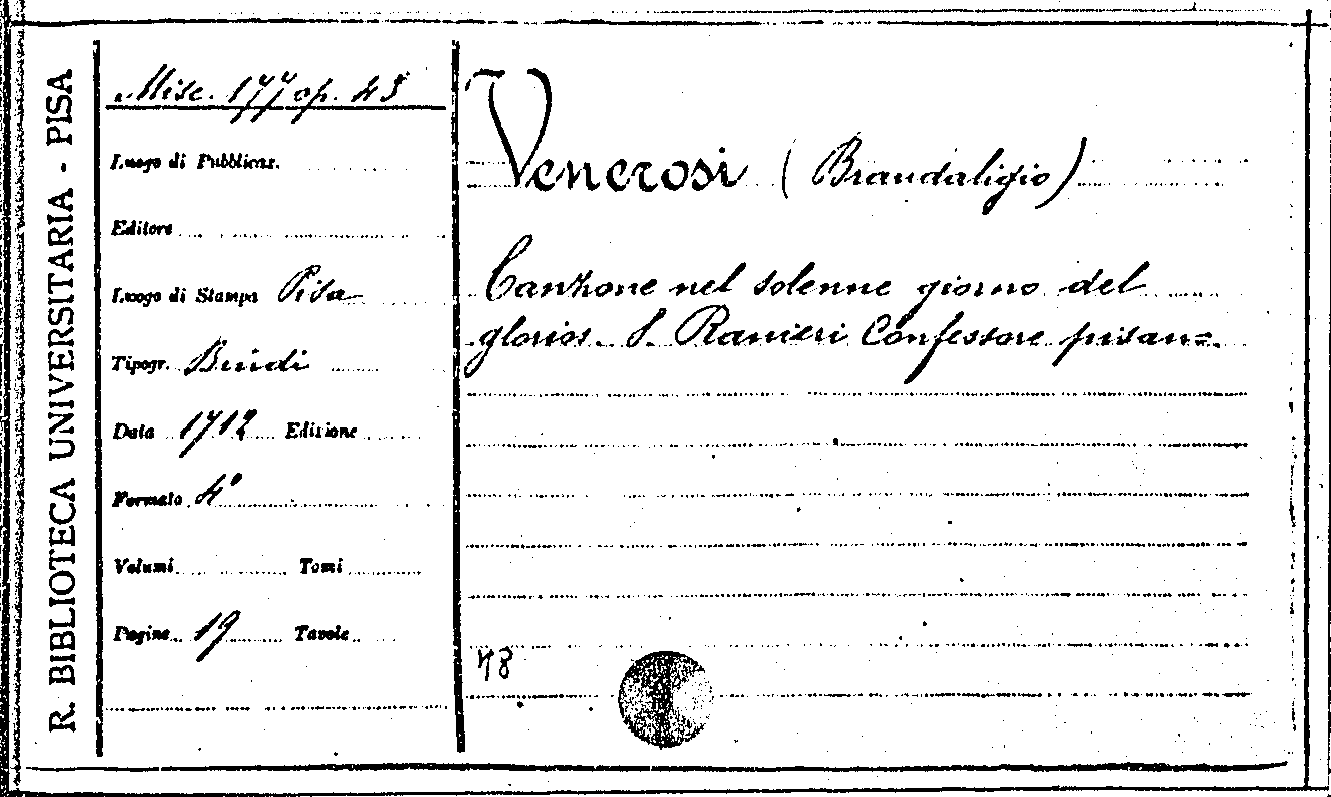 R. BIBLIOTECA UNIVERSITARIA - PISA
Misc. 177 op. 45
Luogo di Pubblicaz.
Editore
Luogo di Stampa Pisa
Tipogr. Bindi
Data 1712 Edizione
Formato 4°
Volumi Tomi
Pagine 19 Tavole
Venerosi (Brandaligio)
Canzone nel solenne giorno del
glorios. S. Ranieri Confessore pisan=.
48